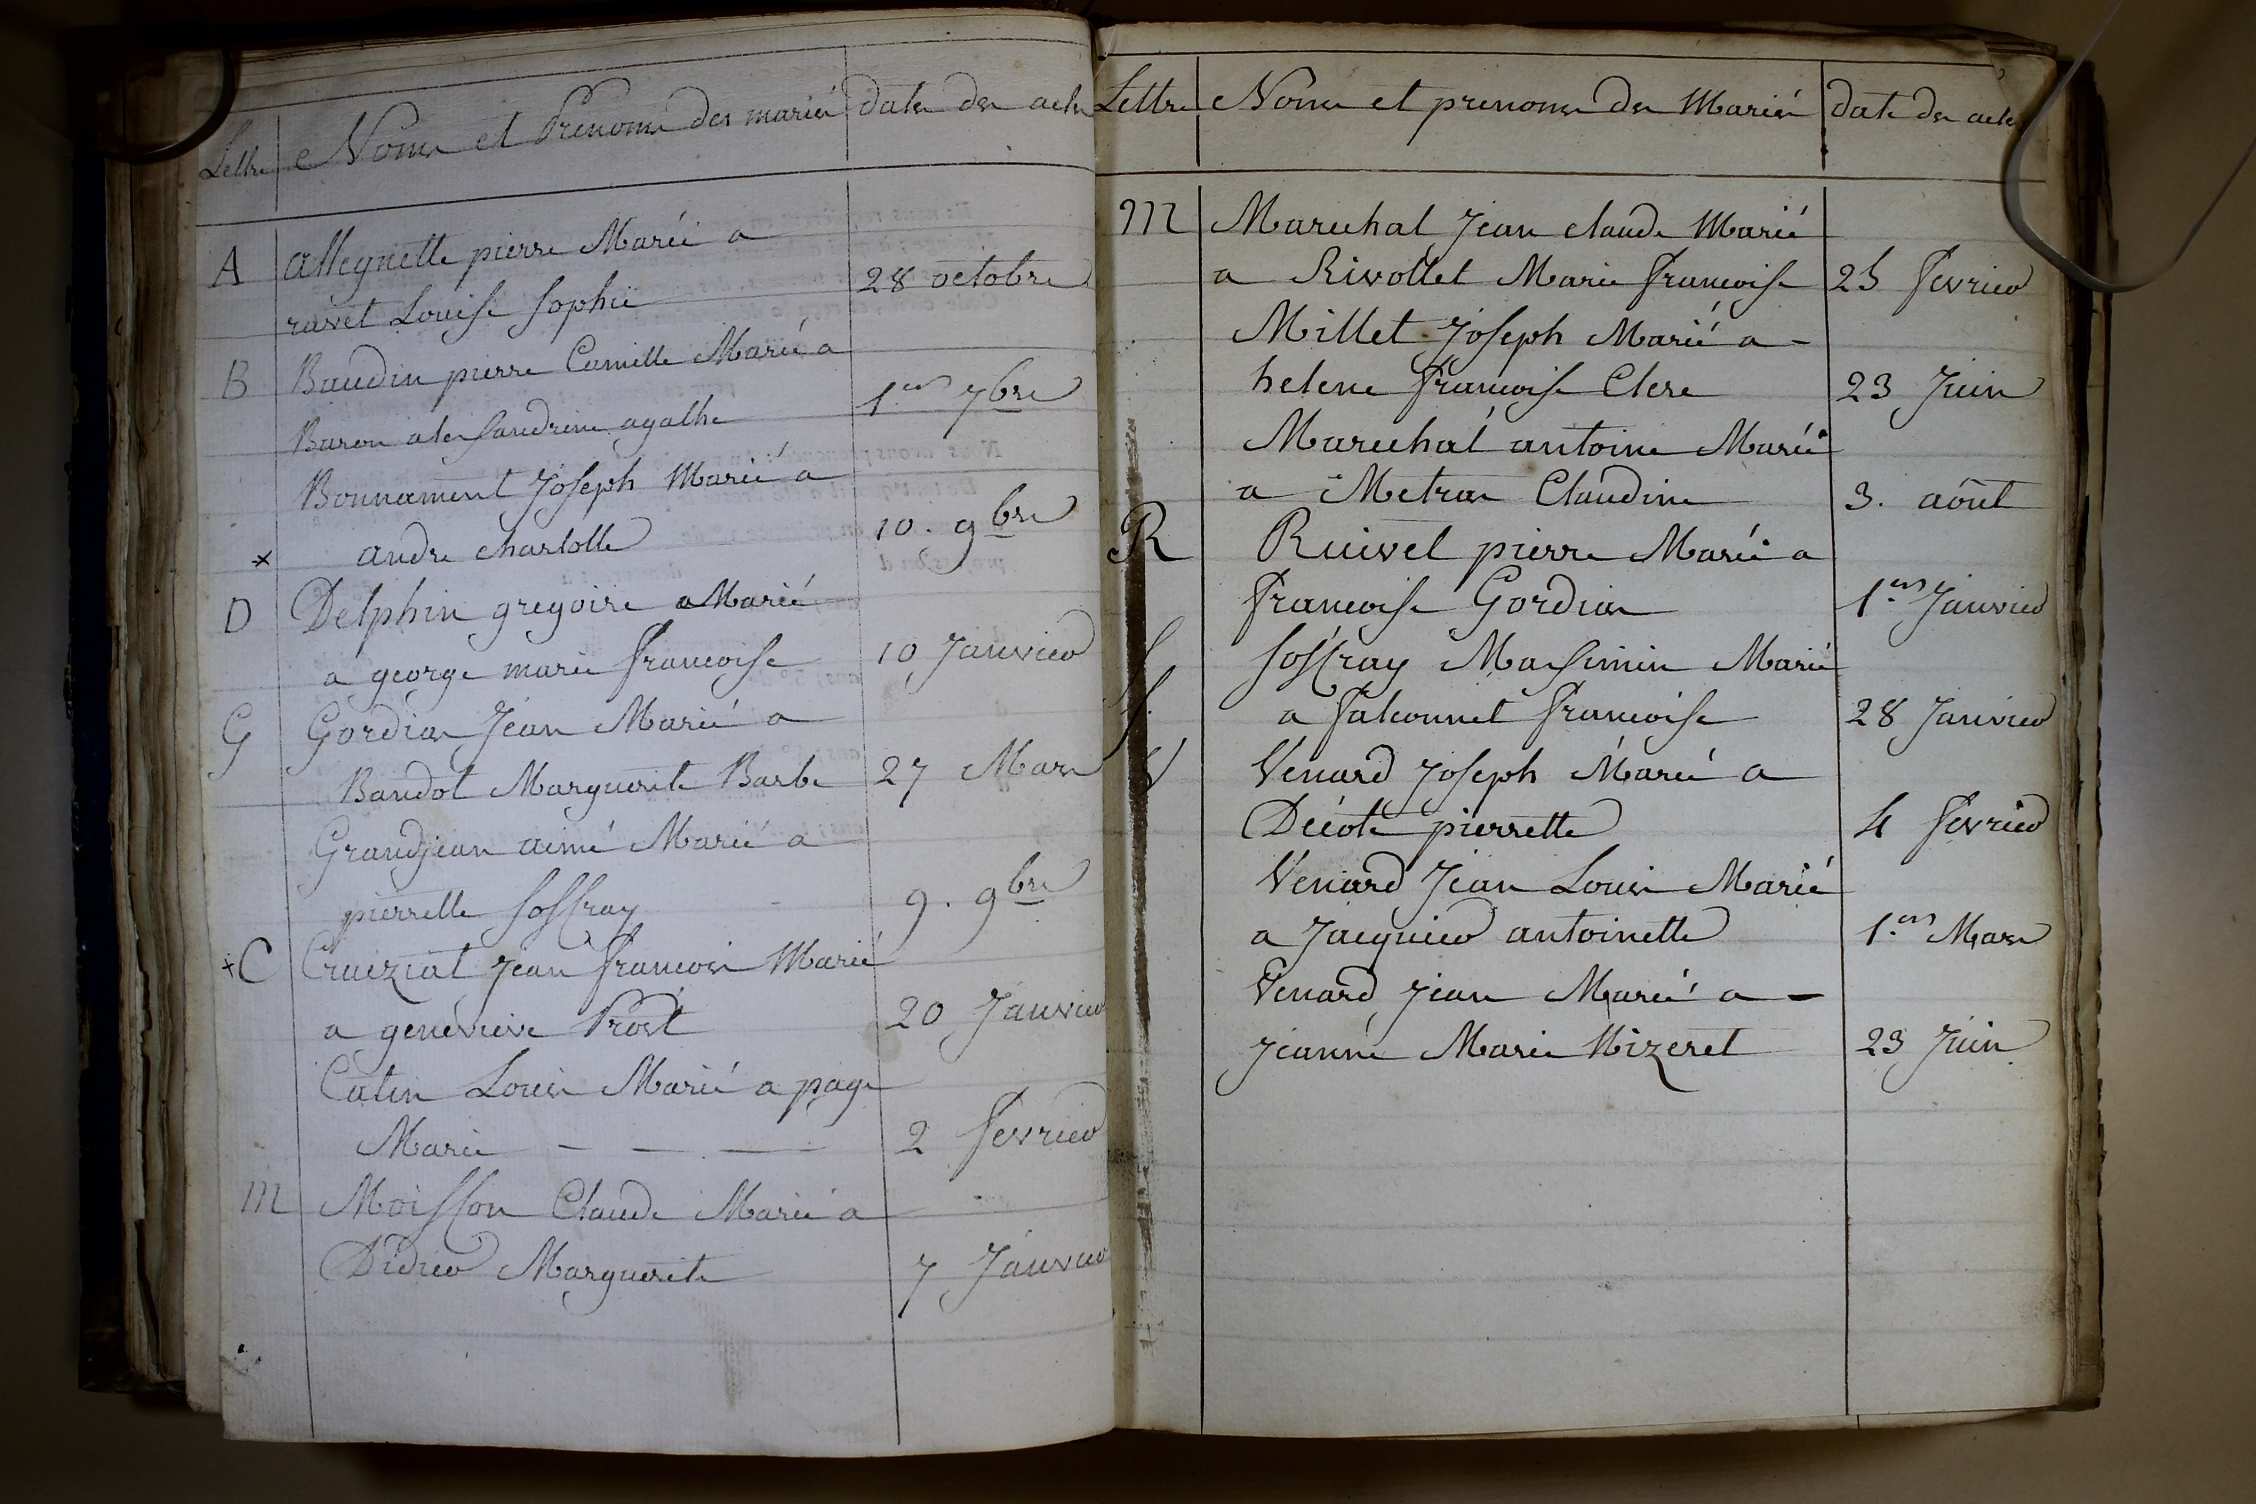 Lettre Noms et Prenoms des mariés dates des actes
A allegnette pierre Marié a
ravet Louise Sophie 28 octobre
B Baudin pierre Camille Marié a
Baron alexsandrine agathe 1er 7bre
Bonnament Joseph Marié a
x andre charlotte 10. 9bre
D Delphin gregoire a Marié
a george marie francoise 10 Janvier
G Gordias Jean Marié a
Baudot Marguerite Barbe 27 Mars
Grandjean aimé Marié a
pierrette Soffray 9. 9bre
x C Cruiziat Jean francois Marié
a geneviève Prost 20 Janvier
Catin Louis Marié a page
Marie — — — 2 fevrier
M Moisson Claude Marié a
Didier Marguerite 7 Janvier
Lettre Noms et prenoms des Mariés date des actes
M Marechal Jean claude Marié
a Rivollet Marie francoise 25 fevrier
Millet Joseph Marié a -
helene francoise Clere 23 Juin
Marechal antoine Marié
a Metras Claudine 3. août
R Ruivet pierre Marié a
francoise Gordias 1er Janvier
S Soffray Maximin Marié
a falconnet francoise 28 Janvier
V Venard Joseph Marié a
Décote pierrette 4 fevrier
Venard Jean Louis Marié
a Jacquier antoinette 1er Mars
Venard Jean Marié a -
Jeanne Marie Mizeret 23 Juin